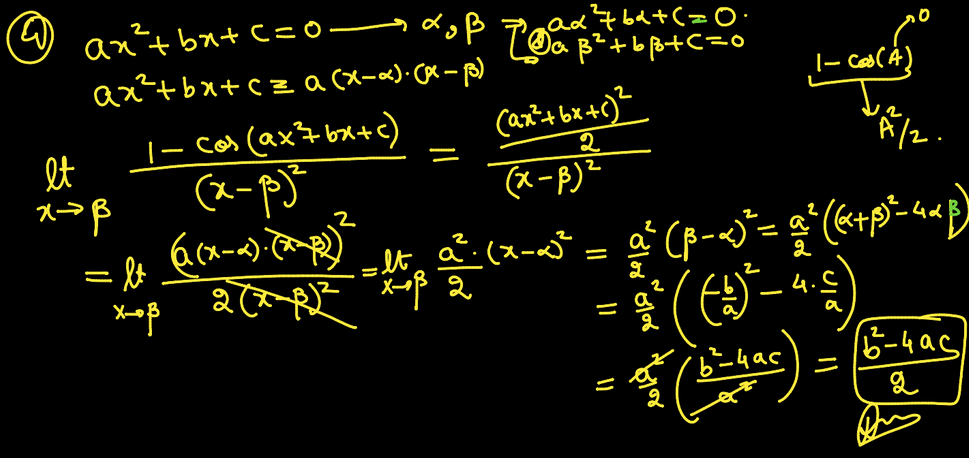 ④ ax²+bx+c=0 ⟶ α,β → aα²+bα+c=0.
& aβ²+bβ+c=0
ax²+bx+c ≡ a(x-α)·(x-β)
1-cos(A) → 0
A²/2.
lt x→β (1-cos(ax²+bx+c))/(x-β)² = ((ax²+bx+c)²/2)/(x-β)²
= lt x→β (a(x-α)·(x-β))²/2(x-β)² = lt x→β a²/2·(x-α)² = a²/2 (β-α)² = a²/2 ((α+β)²-4αβ)
= a²/2 ((-b/a)² - 4·c/a)
= a²/2 ((b²-4ac)/a²) = (b²-4ac)/2